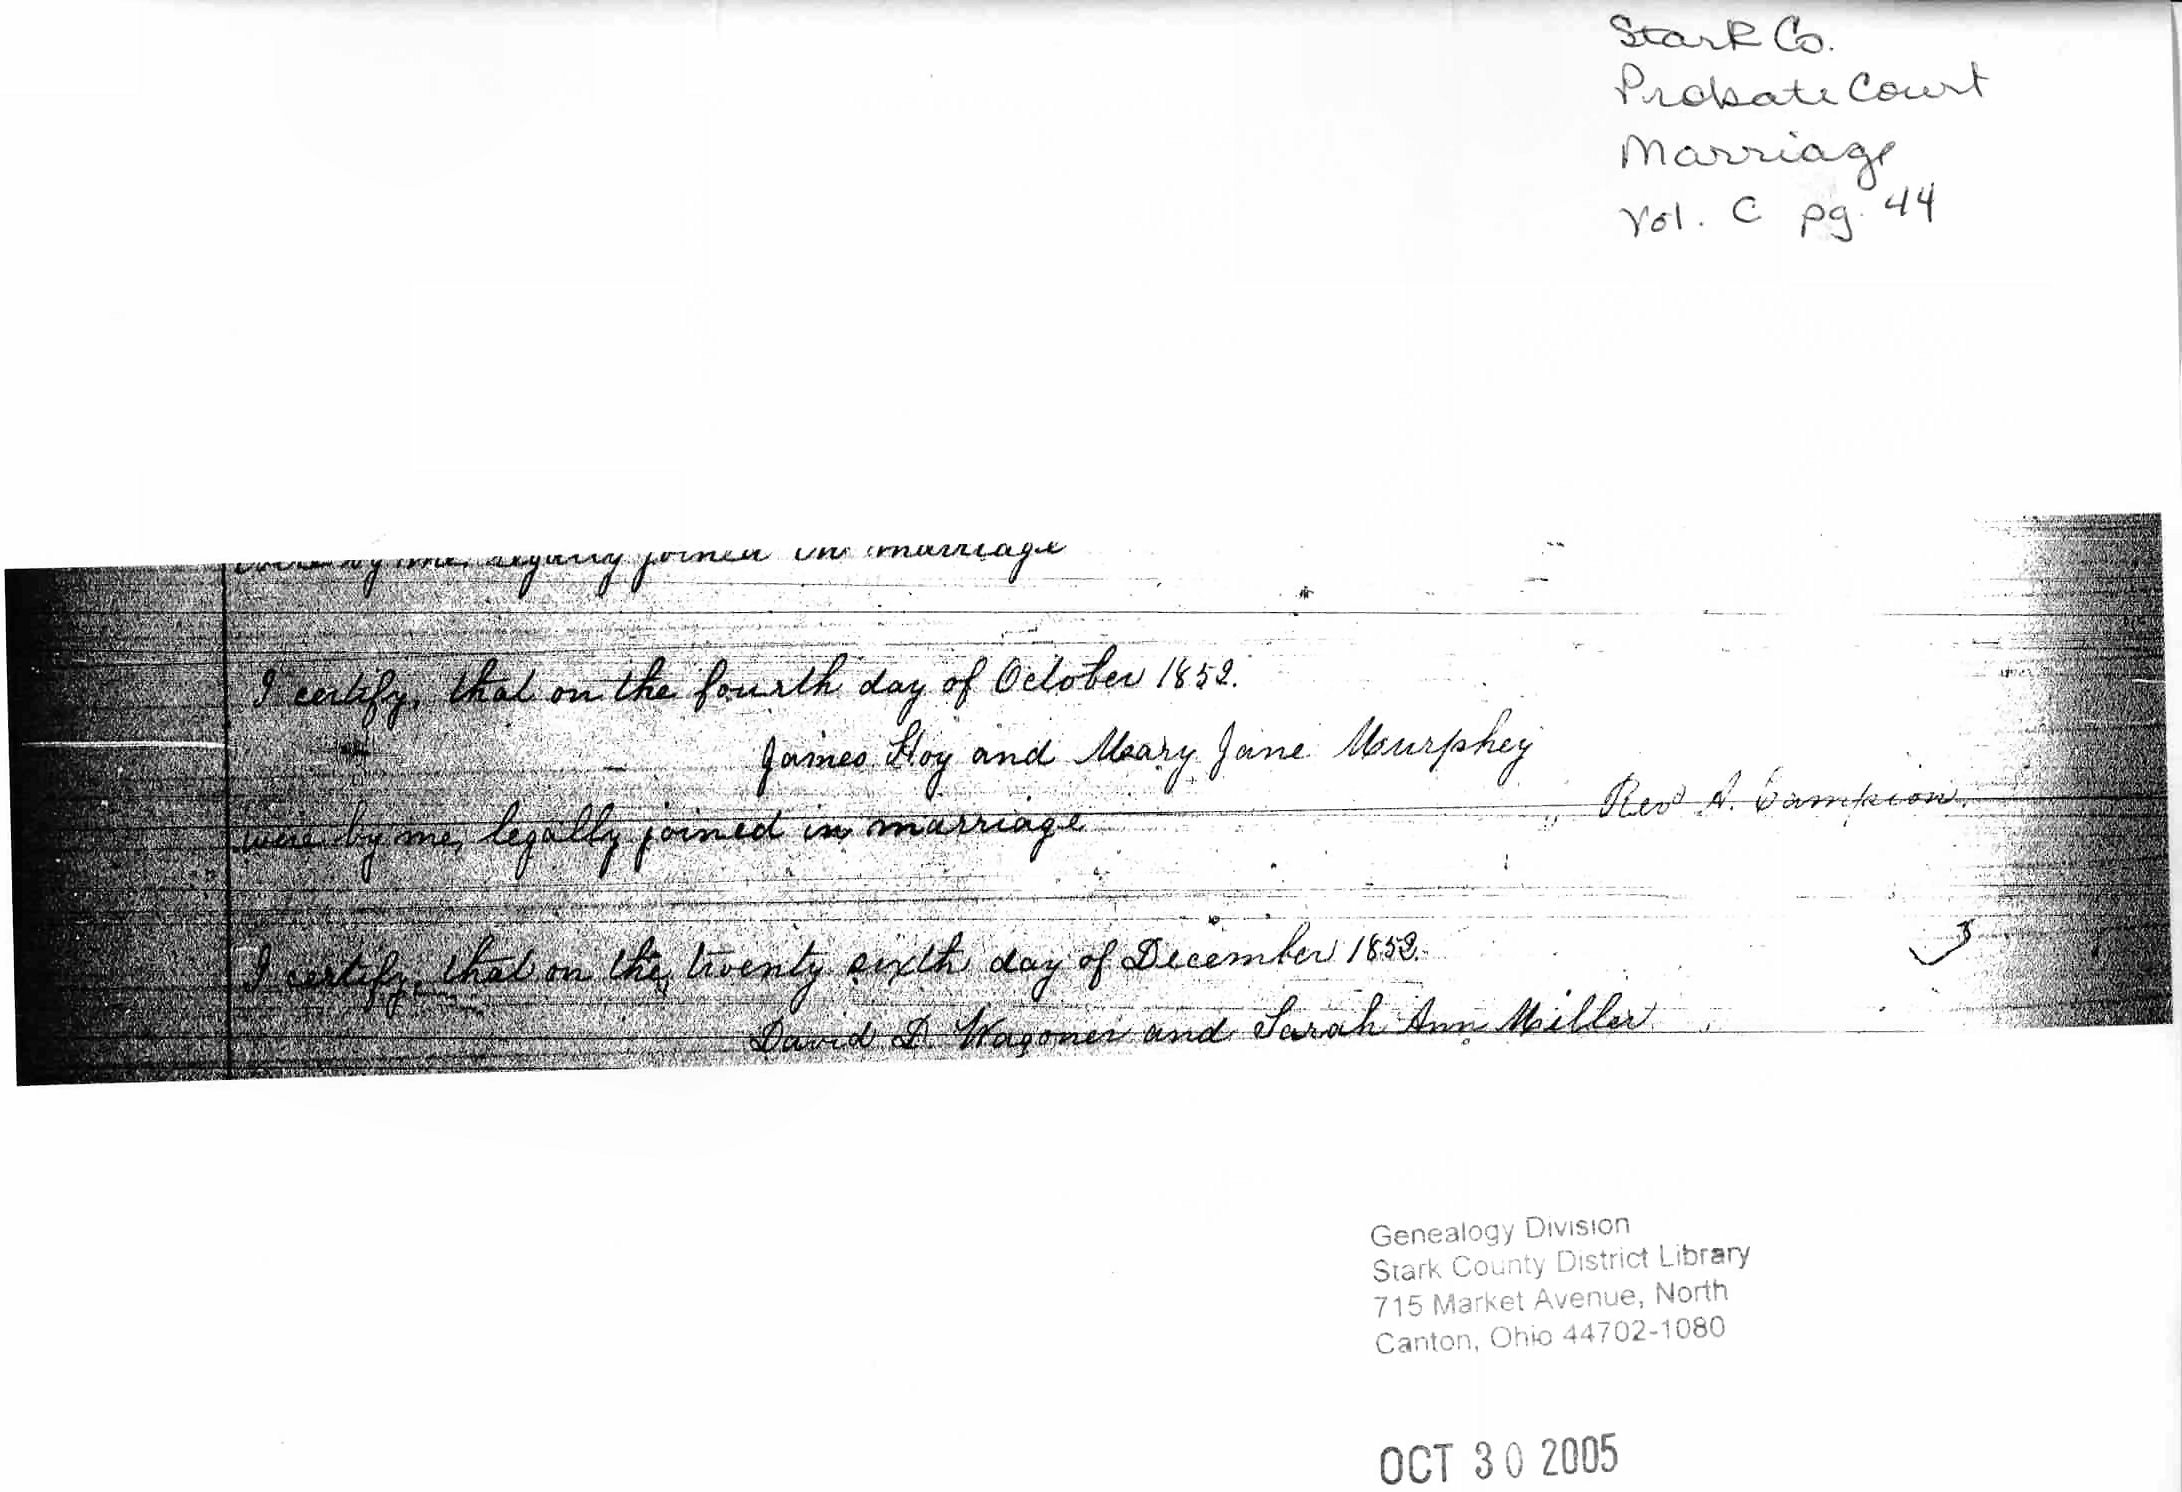 Stark Co.
Probate Court
Marriage
Vol. C pg. 44
were by me, legally joined in marriage
I certify, that on the fourth day of October 1852.
James Hoy and Mary Jane Murphey
Rev^d A. Campion.
were by me, legally joined in marriage
I certify, that on the twenty sixth day of December 1852.
David D Wagoner and Sarah Ann Miller
Genealogy Division
Stark County District Library
715 Market Avenue, North
Canton, Ohio 44702-1080
OCT 30 2005